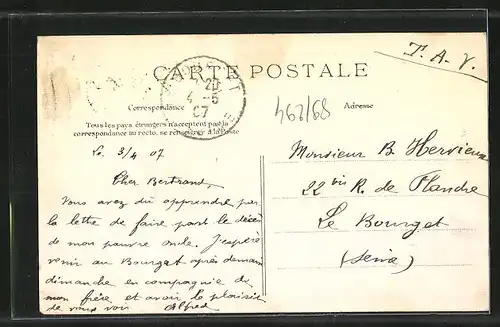 T. A. V.
CARTE POSTALE
20
4 -5
07
Correspondance
Adresse
463/68
Tous les pays étrangers n'acceptent pas la
correspondance au recto, se renseigner à la Poste
Le 3/4 07
Cher Bertrand,
Vous avez dû apprendre par
la lettre de faire part le décès
de mon pauvre oncle. J'espère
venir au Bourget après demain
dimanche en compagnie de
mon frère et avoir le plaisir
de vous voir Alfred
Monsieur B. Hervieux
22 bis R. de Flandre
Le Bourget
(Seine)